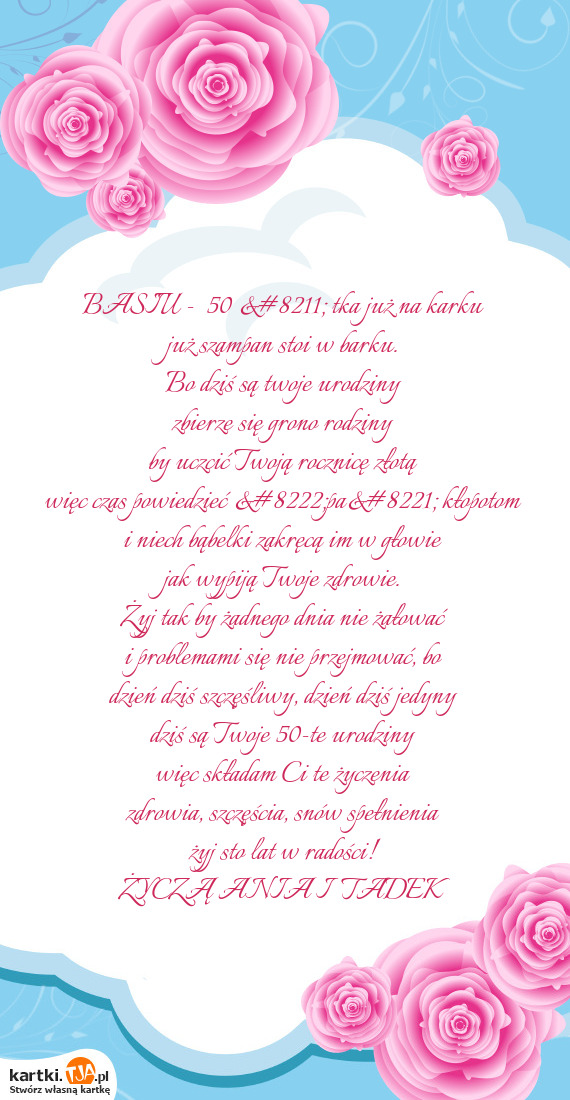 BASIU - 50 &#8211; tka już na karku
już szampan stoi w barku.
Bo dziś są twoje urodziny
zbierze się grono rodziny
by uczcić Twoją rocznicę złotą
więc czas powiedzieć &#8222;pa&#8221; kłopotom
i niech bąbelki zakręcą im w głowie
jak wypiją Twoje zdrowie.
Żyj tak by żadnego dnia nie żałować
i problemami się nie przejmować, bo
dzień dziś szczęśliwy, dzień dziś jedyny
dziś są Twoje 50-te urodziny
więc składam Ci te życzenia
zdrowia, szczęścia, snów spełnienia
żyj sto lat w radości!
ŻYCZĄ ANIA I TADEK
kartki.TJA.pl
Stwórz własną kartkę